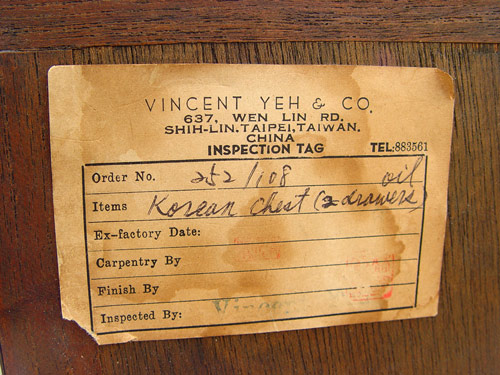 VINCENT YEH & CO.
637, WEN LIN RD.
SHIH-LIN, TAIPEI, TAIWAN.
CHINA
INSPECTION TAG TEL:883561
Order No. 252/108 oil
Items Korean chest (2 drawers)
Ex-factory Date:
Carpentry By
Finish By
Inspected By: